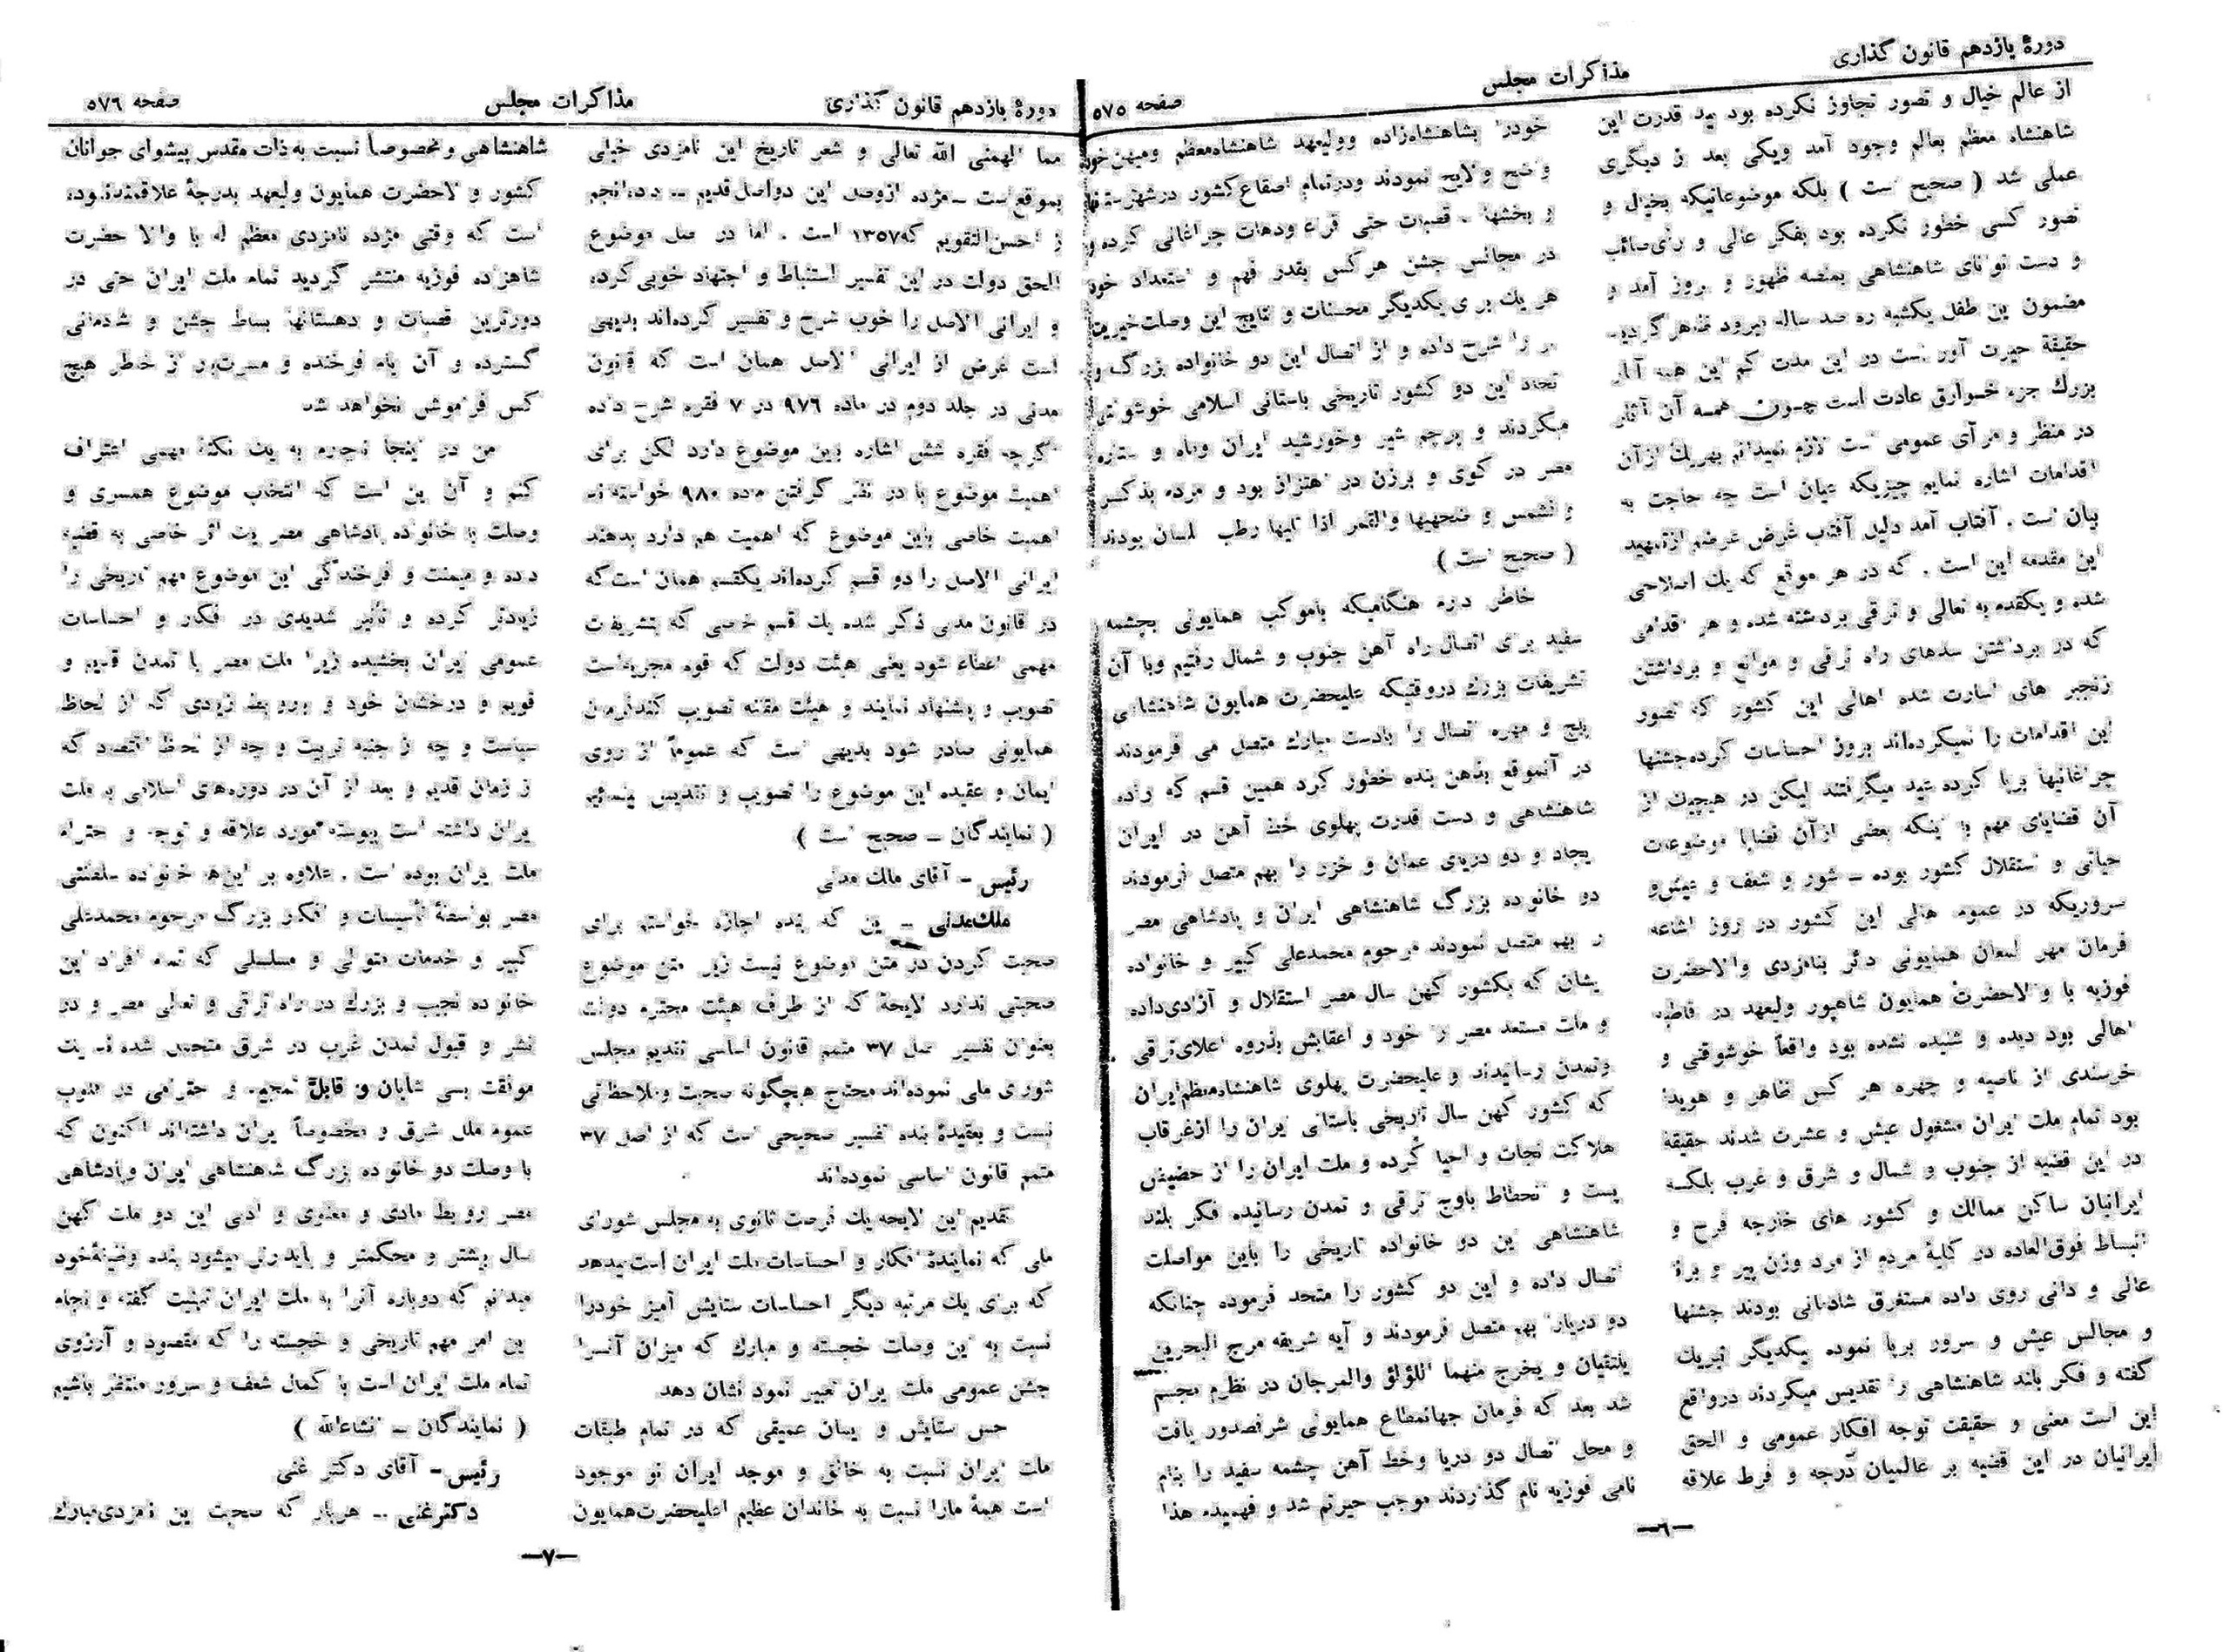 دورهٔ یازدهم قانون گذاری
مذاکرات مجلس
صفحه ٥٧٥
از عالم خیال و تصور تجاوز نکرده بود بید قدرت این
شاهنشاه معظم بعالم وجود آمد ویکی بعد از دیگری
عملی شد ( صحیح است ) بلکه موضوعاتیکه بخیال و
تصور کسی خطور نکرده بود بفکر عالی و رأی صائب
و دست توانای شاهنشاهی بمنصه ظهور و بروز آمد و
مضمون این طفل یکشبه ره صد ساله میرود ظاهر گردید
حقیقة حیرت آور است در این مدت کم این همه آثار
بزرك جزء خوارق عادت است چون همه آن آثار
در منظر و مرآی عمومی است لازم نمیدانم بهریك از آن
اقدامات اشاره نمایم چیزیکه عیان است چه حاجت به
بیان است . آفتاب آمد دلیل آفتاب غرض عرضم ازتمهید
این مقدمه این است . که در هر موقع که یك اصلاحی
شده و یکقدم به تعالی و ترقی برداشته شده و هر اقدامی
که در برداشتن سدهای راه ترقی و موانع و برداشتن
زنجیر های اسارت شده اهالی این کشور که تصور
این اقدامات را نمیکرده‌اند بروز احساسات کرده‌جشنها
چراغانیها برپا کرده عید میگرفتند لیکن در هیچیك از
آن قضایای مهم با اینکه بعضی ازآن قضایا موضوعات
حیاتی و استقلال کشور بوده ــ شور و شعف و عیش‌و
سروریکه در عموم اهالی این کشور در روز اشاعه
فرمان مهر لمعان همایونی دائر بنامزدی والاحضرت
فوزیه با والاحضرت همایون شاهپور ولیعهد در قاطبه
اهالی بود دیده و شنیده نشده بود واقعاً خوشوقتی و
خرسندی از ناصیه و چهره هر کس ظاهر و هویدا
بود تمام ملت ایران مشغول عیش و عشرت شدند حقیقة
در این قضیه از جنوب و شمال و شرق و غرب بلکه
ایرانیان ساکن ممالك و کشور های خارجه فرح و
انبساط فوق‌العاده در کلیهٔ مردم از مرد وزن پیر و برنا
عالی و دانی روی داده مستغرق شادمانی بودند جشنها
و مجالس عیش و سرور برپا نموده بیکدیگر تبریك
گفته و فکر بلند شاهنشاهی را تقدیس میکردند درواقع
این است معنی و حقیقت توجه افکار عمومی و الحق
ایرانیان در این قضیه بر عالمیان درجه و فرط علاقه
خودرا بشاهنشاه‌زاده وولیعهد شاهنشاه‌معظم ومیهن‌خود
واضح ولایح نمودند ودرتمام اصقاع کشور درشهرستانها
و بخشها ـ قصبات حتی قراء ودهات چراغانی کرده و
در مجالس جشن هرکس بقدر فهم و استعداد خود
هر یك برای یکدیگر محسنات و نتایج این وصلت‌خیریت
اثر را شرح داده و از اتصال این دو خانواده بزرگ و
اتحاد این دو کشور تاریخی باستانی اسلامی خوشوقتی
میکردند و پرچم شیر وخورشید ایران وماه و ستاره
مصر در کوی و برزن در اهتزاز بود و مردم بذکر
والشمس و ضحیها والقمر اذا تلیها رطب اللسان بودند
( صحیح است )
خاطر دارم هنگامیکه باموکب همایونی بچشمه
سفید برای اتصال راه آهن جنوب و شمال رفتیم وبا آن
تشریفات بزرك دروقتیکه علیحضرت همایون شاهنشاهی
پیچ و مهره اتصال را بادست مبارك متصل می فرمودند
در آنموقع بذهن بنده خطور کرد همین قسم که راده
شاهنشاهی و دست قدرت پهلوی خط آهن در ایران
ایجاد و دو دریای عمان و خزر را بهم متصل فرمودند
دو خانواده بزرگ شاهنشاهی ایران و پادشاهی مصر
را بهم متصل نمودند مرحوم محمدعلی کبیر و خانواده
ایشان که بکشور کهن سال مصر استقلال و آزادی‌داده
و ملت مستعد مصر را خود و اعقابش بذروه اعلای‌ترقی
وتمدن رسانیدند و علیحضرت پهلوی شاهنشاه‌معظم‌ایران
که کشور کهن سال تاریخی باستانی ایران را ازغرقاب
هلاکت نجات و احیا کرده و ملت ایران را از حضیض
پست و انحطاط باوج ترقی و تمدن رسانیده فکر بلند
شاهنشاهی این دو خانواده تاریخی را باین مواصلت
اتصال داده و این دو کشور را متحد فرموده چنانکه
دو دریارا بهم متصل فرمودند و آیه شریفه مرج البحرین
یلتقیان و یخرج منهما اللؤلؤ والمرجان در نظرم مجسم
شد بعد که فرمان جهانمطاع همایونی شرفصدور یافت
و محل اتصال دو دریا وخط آهن چشمه سفید را بنام
نامی فوزیه نام گذاردند موجب حیرتم شد و فهمیده هذا
ــ٦ــ
دورهٔ یازدهم قانون گذاری
مذاکرات مجلس
صفحه ٥٧٦
مما الهمنی الله تعالی و شعر تاریخ این نامزدی خیلی
بموقع‌است ــ مژده ازوصل این دواصل‌قدیم ــ داده‌انجم
از احسن‌التقویم که١٣٥٧ است . اما در اصل موضوع
الحق دولت در این تفسیر استنباط و اجتهاد خوبی‌کرده
و ایرانی الاصل را خوب شرح و تفسیر کرده‌اند بدیهی
است غرض از ایرانی الاصل همان است که قانون
مدنی در جلد دوم در ماده ٩٧٦ در ٧ فقره شرح داده
اگرچه فقره شش اشاره باین موضوع دارد لکن برای
اهمیت موضوع با در نظر گرفتن ماده ٩٨٠ خواسته‌اند
اهمیت خاصی باین موضوع که اهمیت هم دارد بدهند
ایرانی الاصل را دو قسم کرده‌اند یکقسم همان است‌که
در قانون مدنی ذکر شده یك قسم خاصی که بتشریفات
مهمی اعطاء شود یعنی هیئت دولت که قوه مجریه‌است
تصویب و پیشنهاد نمایند و هیئت مقننه تصویب کندفرمان
همایونی صادر شود بدیهی است که عموماً از روی
ایمان و عقیده این موضوع را تصویب و تقدیس مینمائیم
( نمایندگان ــ صحیح است )
رئیس ــ آقای ملك مدنی
ملك‌مدنی ــ این که بنده اجازه خواستم برای
صحبت کردن در متن موضوع نیست زیرا متن موضوع
صحبتی ندارد لایحهٔ که از طرف هیئت محترم دولت
بعنوان تفسیر اصل ٣٧ متمم قانون اساسی تقدیم مجلس
شورای ملی نموده‌اند محتاج هیچگونه صحبت وملاحظاتی
نیست و بعقیدهٔ بنده تفسیر صحیحی است که از اصل ٣٧
متمم قانون اساسی نموده‌اند
تقدیم این لایحه یك فرصت ثانوی به مجلس شورای
ملی که نمایندهٔ افکار و احساسات ملت ایران است‌میدهد
که برای یك مرتبه دیگر احساسات ستایش آمیز خودرا
نسبت به این وصلت خجسته و مبارك که میزان آنرا
جشن عمومی ملت ایران تعبیر نمود نشان دهد
حس ستایش و ایمان عمیقی که در تمام طبقات
ملت ایران نسبت به خالق و موجد ایران نو موجود
است همهٔ مارا نسبت به خاندان عظیم اعلیحضرت‌همایون
شاهنشاهی و مخصوصاً نسبت به ذات مقدس پیشوای جوانان
کشور والاحضرت همایون ولیعهد بدرجهٔ علاقمندنموده
است که وقتی مژده نامزدی معظم له با والا حضرت
شاهزاده فوزیه منتشر گردید تمام ملت ایران حتی در
دورترین قصبات و دهستانها بساط جشن و شادمانی
گسترده و آن ایام فرخنده و مسرت‌بار از خاطر هیچ
کس فراموش نخواهد شد
من در اینجا ناچارم به یك نکتهٔ مهمی اعتراف
کنم و آن این است که انتخاب موضوع همسری و
وصلت با خانواده پادشاهی مصر یك اثر خاصی به قضیه
داده و میمنت و فرخندگی این موضوع مهم تاریخی را
زیادتر کرده و تأثیر شدیدی در افکار و احساسات
عمومی ایران بخشیده زیرا ملت مصر با تمدن قدیم و
قویم و درخشان خود و روابط زیادی که از لحاظ
سیاست و چه از جنبه تربیت و چه از لحاظ اقتصاد که
از زمان قدیم و بعد از آن در دوره‌های اسلامی به ملت
ایران داشته است پیوسته مورد علاقه و توجه و احترام
ملت ایران بوده است . علاوه بر این‌ها خانواده سلطنتی
مصر بواسطهٔ تأسیسات و افکار بزرگ مرحوم محمدعلی
کبیر و خدمات متوالی و مسلسلی که تمام افراد این
خانواده نجیب و بزرك در راه ترقی و تعالی مصر و در
نشر و قبول تمدن غرب در شرق متحمل شده است
موفقیت بسی شایان و قابل تمجید و احترامی در قلوب
عموم ملل شرق و مخصوصاً ایران داشته‌اند اکنون که
با وصلت دو خانواده بزرگ شاهنشاهی ایران وپادشاهی
مصر روابط مادی و معنوی و ادبی این دو ملت کهن
سال بیشتر و محکمتر و پایدارتر میشود بنده وظیفهٔ‌خود
میدانم که دوباره آنرا به ملت ایران تهنیت گفته و انجام
این امر مهم تاریخی و خجسته را که مقصود و آرزوی
تمام ملت ایران است با کمال شعف و سرور منتظر باشیم
( نمایندگان ــ انشاءالله )
رئیس ــ آقای دکتر غنی
دکترغنی ــ هربار که صحبت این نامزدی‌مبارك
ــ٧ــ